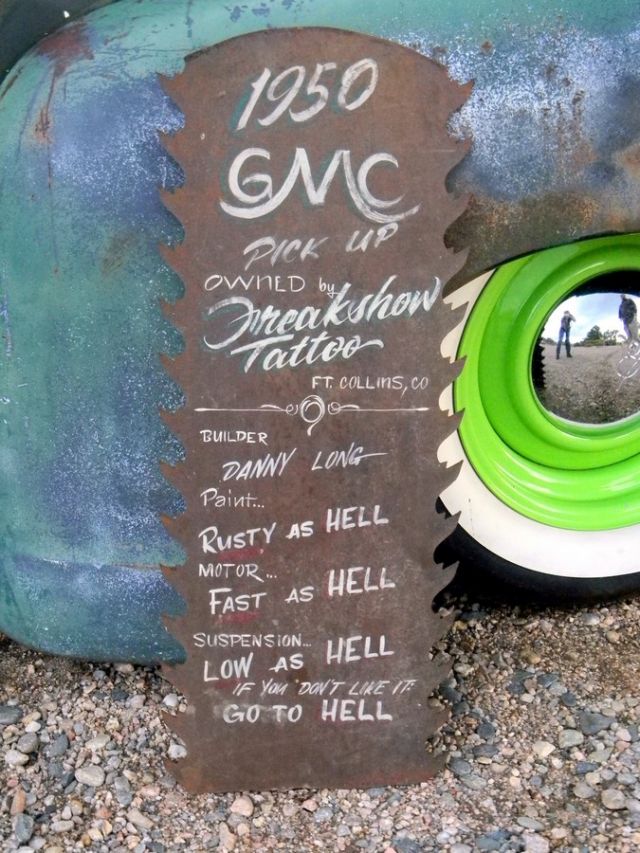 1950
GMC
PICK UP
OWNED by
Freakshow
Tattoo
FT. COLLINS, CO
BUILDER
DANNY LONG
Paint...
RUSTY AS HELL
MOTOR...
FAST AS HELL
SUSPENSION...
LOW AS HELL
IF YOU DON'T LIKE IT:
GO TO HELL